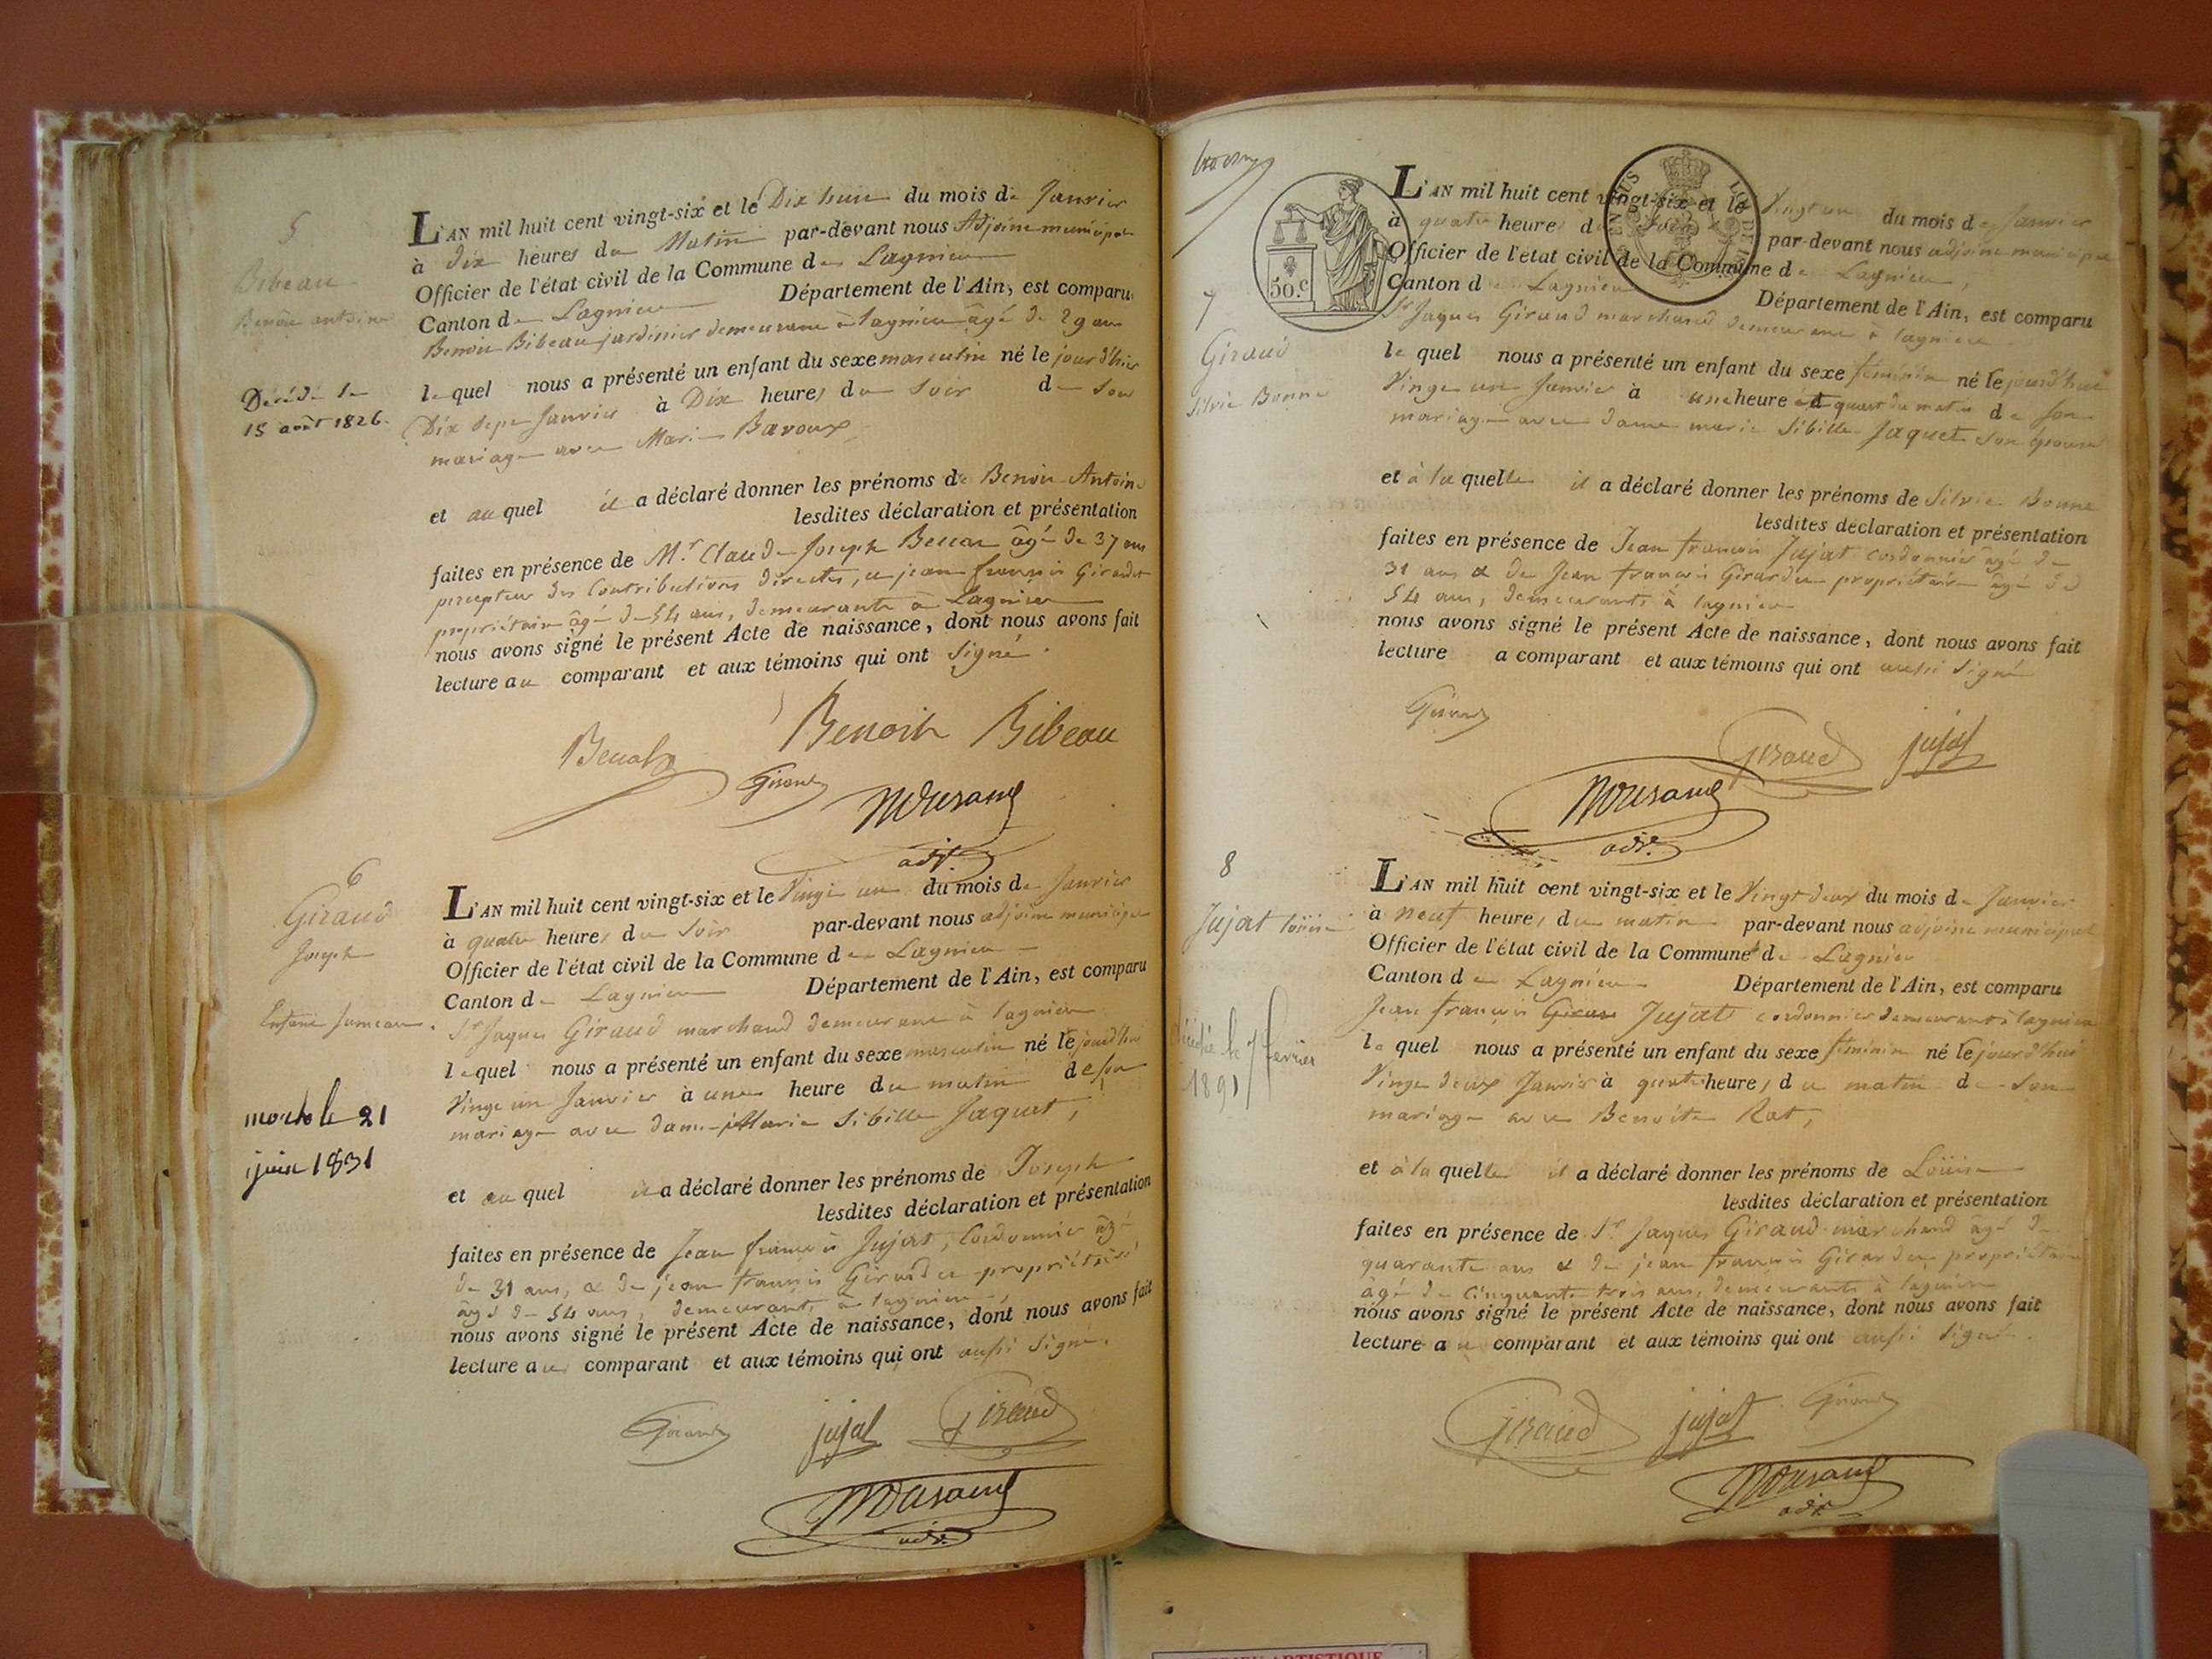 5
Bibeau
Benoit antoine
Décédé le
15 août 1826.
L'AN mil huit cent vingt-six et le Dix huit du mois de Janvier
à dix heures du Matin par-devant nous Adjoint municipal
Officier de l'état civil de la Commune de Lagnieu
Canton de Lagnieu Département de l'Ain, est comparu
Benoit Bibeau jardinier demeurant à lagnieu âgé de 29 ans
lequel nous a présenté un enfant du sexe masculin né le jour d'hier
Dix sept Janvier à Dix heures du soir de son
mariage avec Marie Bavoux
et auquel il a déclaré donner les prénoms de Benoit Antoine
lesdites déclaration et présentation
faites en présence de Mr. Claude Joseph âgé de 37 ans
percepteur des Contributions directes, et jean françois Girardet
propriétaire âgé de 54 ans, demeurants à Lagnieu
nous avons signé le présent Acte de naissance, dont nous avons fait
lecture au comparant et aux témoins qui ont signé.
Benoit Bibeau
adjt.
6
Giraud
Joseph
Enfant Jumeau.
mort le 21
juin 1831
L'AN mil huit cent vingt-six et le Vingt un du mois de Janvier
à quatre heures du soir par-devant nous adjoint municipal
Officier de l'état civil de la Commune de Lagnieu
Canton de Lagnieu Département de l'Ain, est comparu
Sr Jaques Giraud marchand demeurant à lagnieu
lequel nous a présenté un enfant du sexe masculin né le jourd'hui
Vingt un Janvier à une heure du matin de son
mariage avec dame Marie Sibille Jaquet,
et auquel il a déclaré donner les prénoms de Joseph
lesdites déclaration et présentation
faites en présence de Jean françois Jujat, Cordonnier âgé
de 31 ans, & de jean françois Girardet propriétaire
âgé de 54 ans, demeurants à lagnieu,
nous avons signé le présent Acte de naissance, dont nous avons fait
lecture au comparant et aux témoins qui ont aussi signé.
jujat Giraud
adjt.
50.c
7
Giraud
Silvie Bonne
L'AN mil huit cent vingt-six et le Vingt un du mois de Janvier
à quatre heures du soir par-devant nous adjoint municipal
Officier de l'état civil de la Commune de Lagnieu,
Canton de Lagnieu Département de l'Ain, est comparu
Sr Jaques Giraud marchand demeurant à lagnieu
lequel nous a présenté un enfant du sexe féminin né le jourd'hui
Vingt un Janvier à une heure et quart du matin de son
mariage avec dame marie Sibille Jaquet son épouse
et à laquelle il a déclaré donner les prénoms de Silvie Bonne
lesdites déclaration et présentation
faites en présence de Jean françois Jujat cordonnier âgé de
31 ans & de Jean françois Girardet propriétaire âgé de
54 ans, demeurants à lagnieu
nous avons signé le présent Acte de naissance, dont nous avons fait
lecture a comparant et aux témoins qui ont aussi signé
Giraud jujat
adjt.
8
Jujat Loüise
Décédée le 7 février
1891
L'AN mil huit cent vingt-six et le Vingt deux du mois de Janvier
à neuf heures du matin par-devant nous adjoint municipal
Officier de l'état civil de la Commune de Lagnieu
Canton de Lagnieu Département de l'Ain, est comparu
Jean françois Jujat cordonnier demeurant à lagnieu
lequel nous a présenté un enfant du sexe féminin né le jourd'hui
Vingt deux Janvier à quatre heures du matin de son
mariage avec Benoite Rat,
et à laquelle il a déclaré donner les prénoms de Loüise
lesdites déclaration et présentation
faites en présence de Sr. Jaques Giraud marchand âgé de
quarante ans & de jean françois Girardet propriétaire
âgé de Cinquante trois ans, demeurants à lagnieu
nous avons signé le présent Acte de naissance, dont nous avons fait
lecture au comparant et aux témoins qui ont aussi signé.
Giraud jujat
adjt.